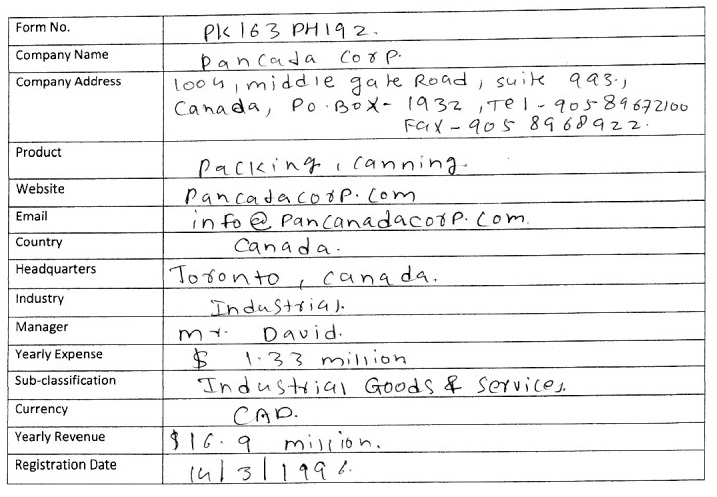 Form No. PK163PH192.
Company Name Pancada Corp.
Company Address 1004, middle gate Road, suite 993.,
Canada, Po.Box- 1932, Tel - 90589672100
Fax - 905 8968922.
Product Packing, canning.
Website Pancadacorp.com
Email info@Pancanadacorp.com.
Country Canada.
Headquarters Toronto, canada.
Industry Industrial.
Manager mr. David.
Yearly Expense $ 1.33 million
Sub-classification Industrial Goods & Services.
Currency CAD.
Yearly Revenue $16.9 million.
Registration Date 14/3/199